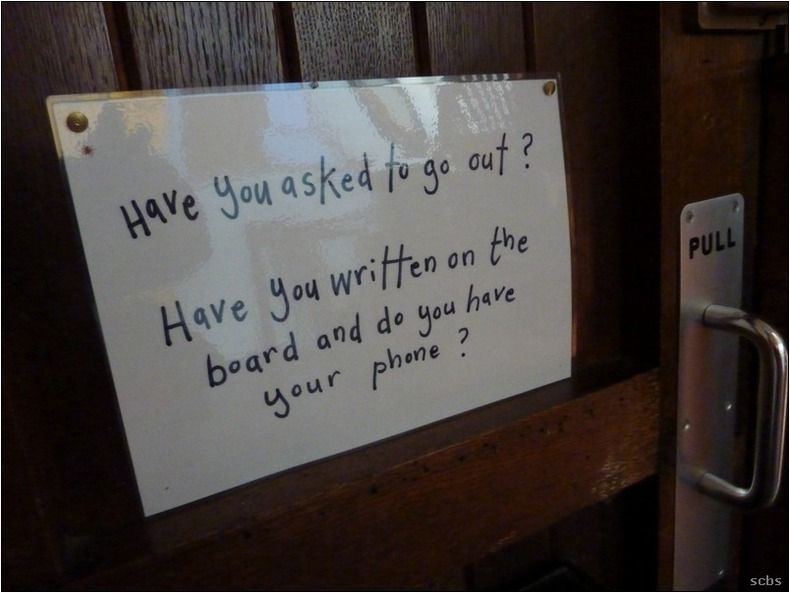 Have you asked to go out?
Have you written on the
board and do you have
your phone?
PULL
scbs